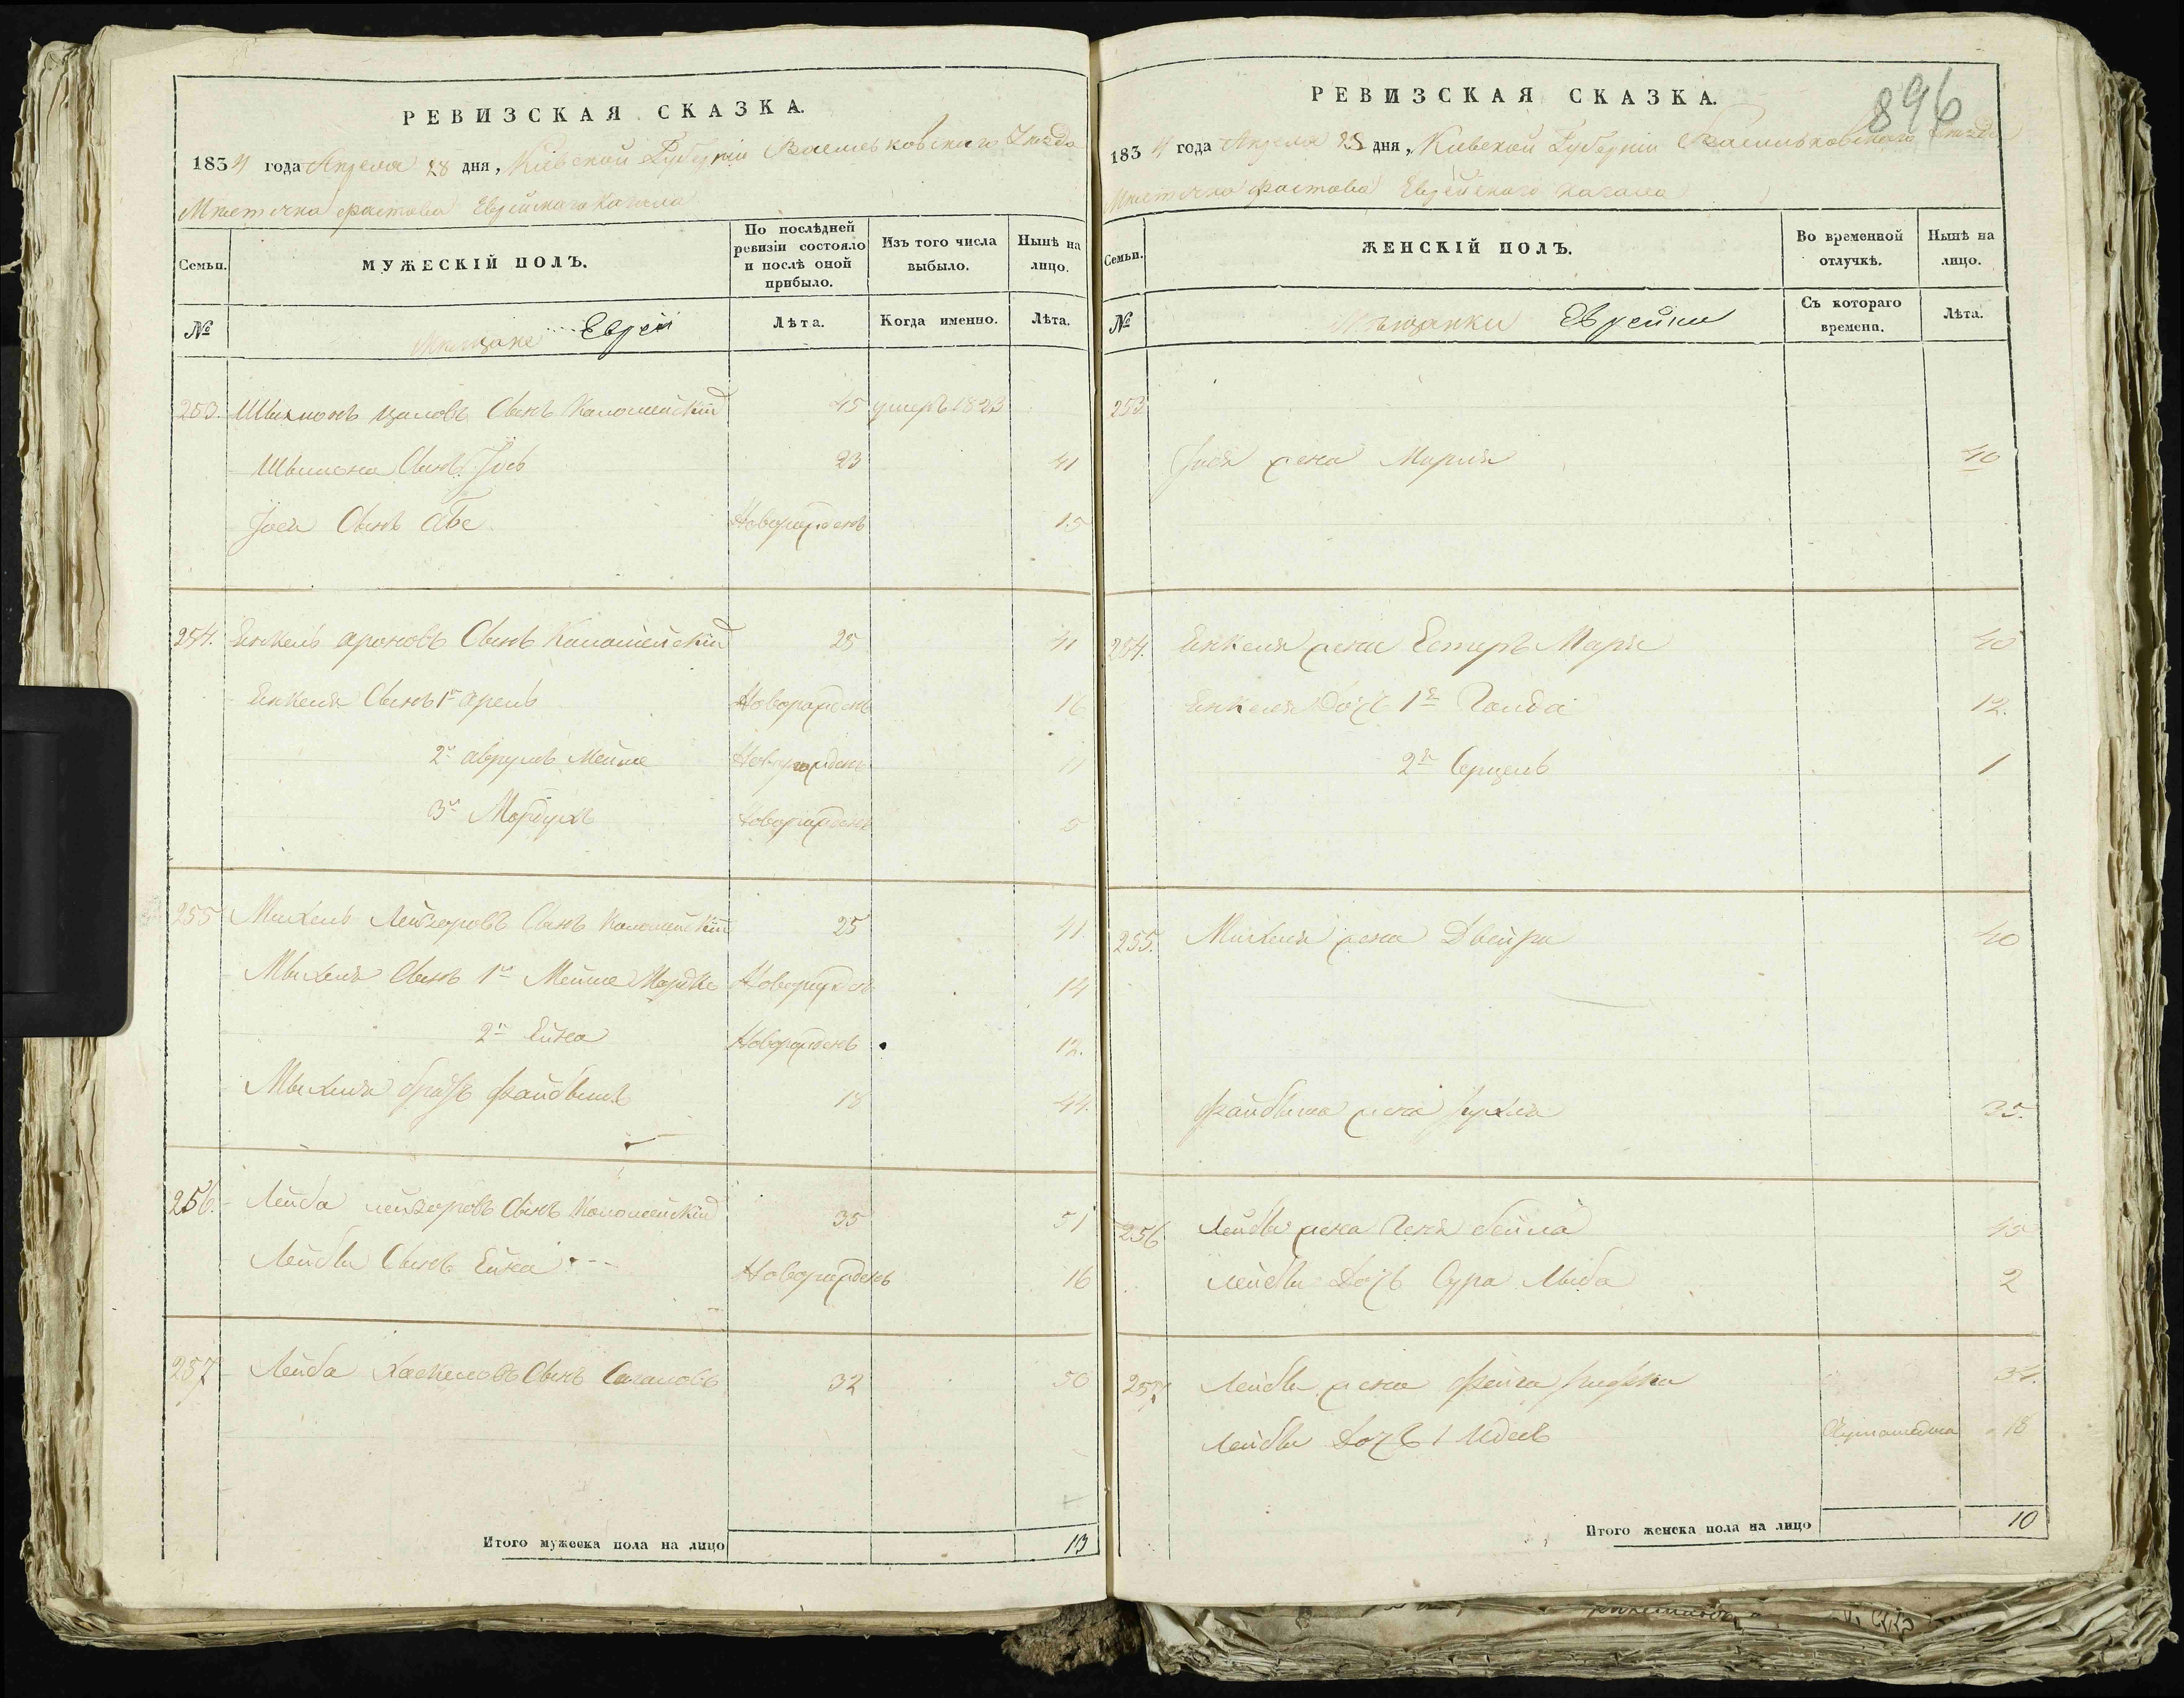 РЕВИЗСКАЯ СКАЗКА.
1834 года Апреля 28 дня, Кіевской Губерніи Васильковского Уезда
Мѣстечка фастова Еврейскаго Кагала
Семьи.
МУЖЕСКІЙ ПОЛЪ.
По послѣдней ревизіи состояло и послѣ оной прибыло.
Изъ того числа выбыло.
Нынѣ на лицо.
№
Мещане Евреи
Лѣта.
Когда именно.
Лѣта.
253. Сынъ Каломейскій 45 умеръ 1823
Сынъ Іось 23 41
Іося Сынъ Абе Новорожденъ 15
254. Енкель ароновъ Сынъ Каломейскій 25 41
Енкеля Сынъ 1й Новорожденъ 16
2й аврумъ Мейше Новорожденъ 11
3й Мордухъ Новорожденъ 5
255 Михель Лейзоровъ Сынъ Каломейскій 25 41.
Михеля Сынъ 1й Мейше Мордко Новорожденъ 14
2й Новорожденъ 12.
Михеля братъ файбишъ 18 44.
256. Лейба лейзоровъ Сынъ Коломейскій 35 51
Лейбы Сынъ Новорожденъ 16
257 Лейба Хаскелевъ Сынъ 32 50
Итого мужеска пола на лицо 13
896
РЕВИЗСКАЯ СКАЗКА.
1834 года Апреля 28 дня, Кіевской Губерніи Васильковскаго Уезда
Мѣстечка фастова Еврейскаго Кагала
Семьи.
ЖЕНСКІЙ ПОЛЪ.
Во временной отлучкѣ.
Нынѣ на лицо.
№
Мѣщанки Еврейки
Съ котораго времени.
Лѣта.
253
Іося жена Марія 40
254. Енкеля жена Естеръ Марія 40
Енкеля Дочь 1я Голда 12.
2я 1
255. Михеля жена Двейра 40
файбиша жена 35.
256 Лейбы жена Геня бейла 40
лейбы Дочь Сура 2
257 Лейбы жена Фейга 34.
Лейбы Дочь 1 18
Итого женска пола на лицо 10